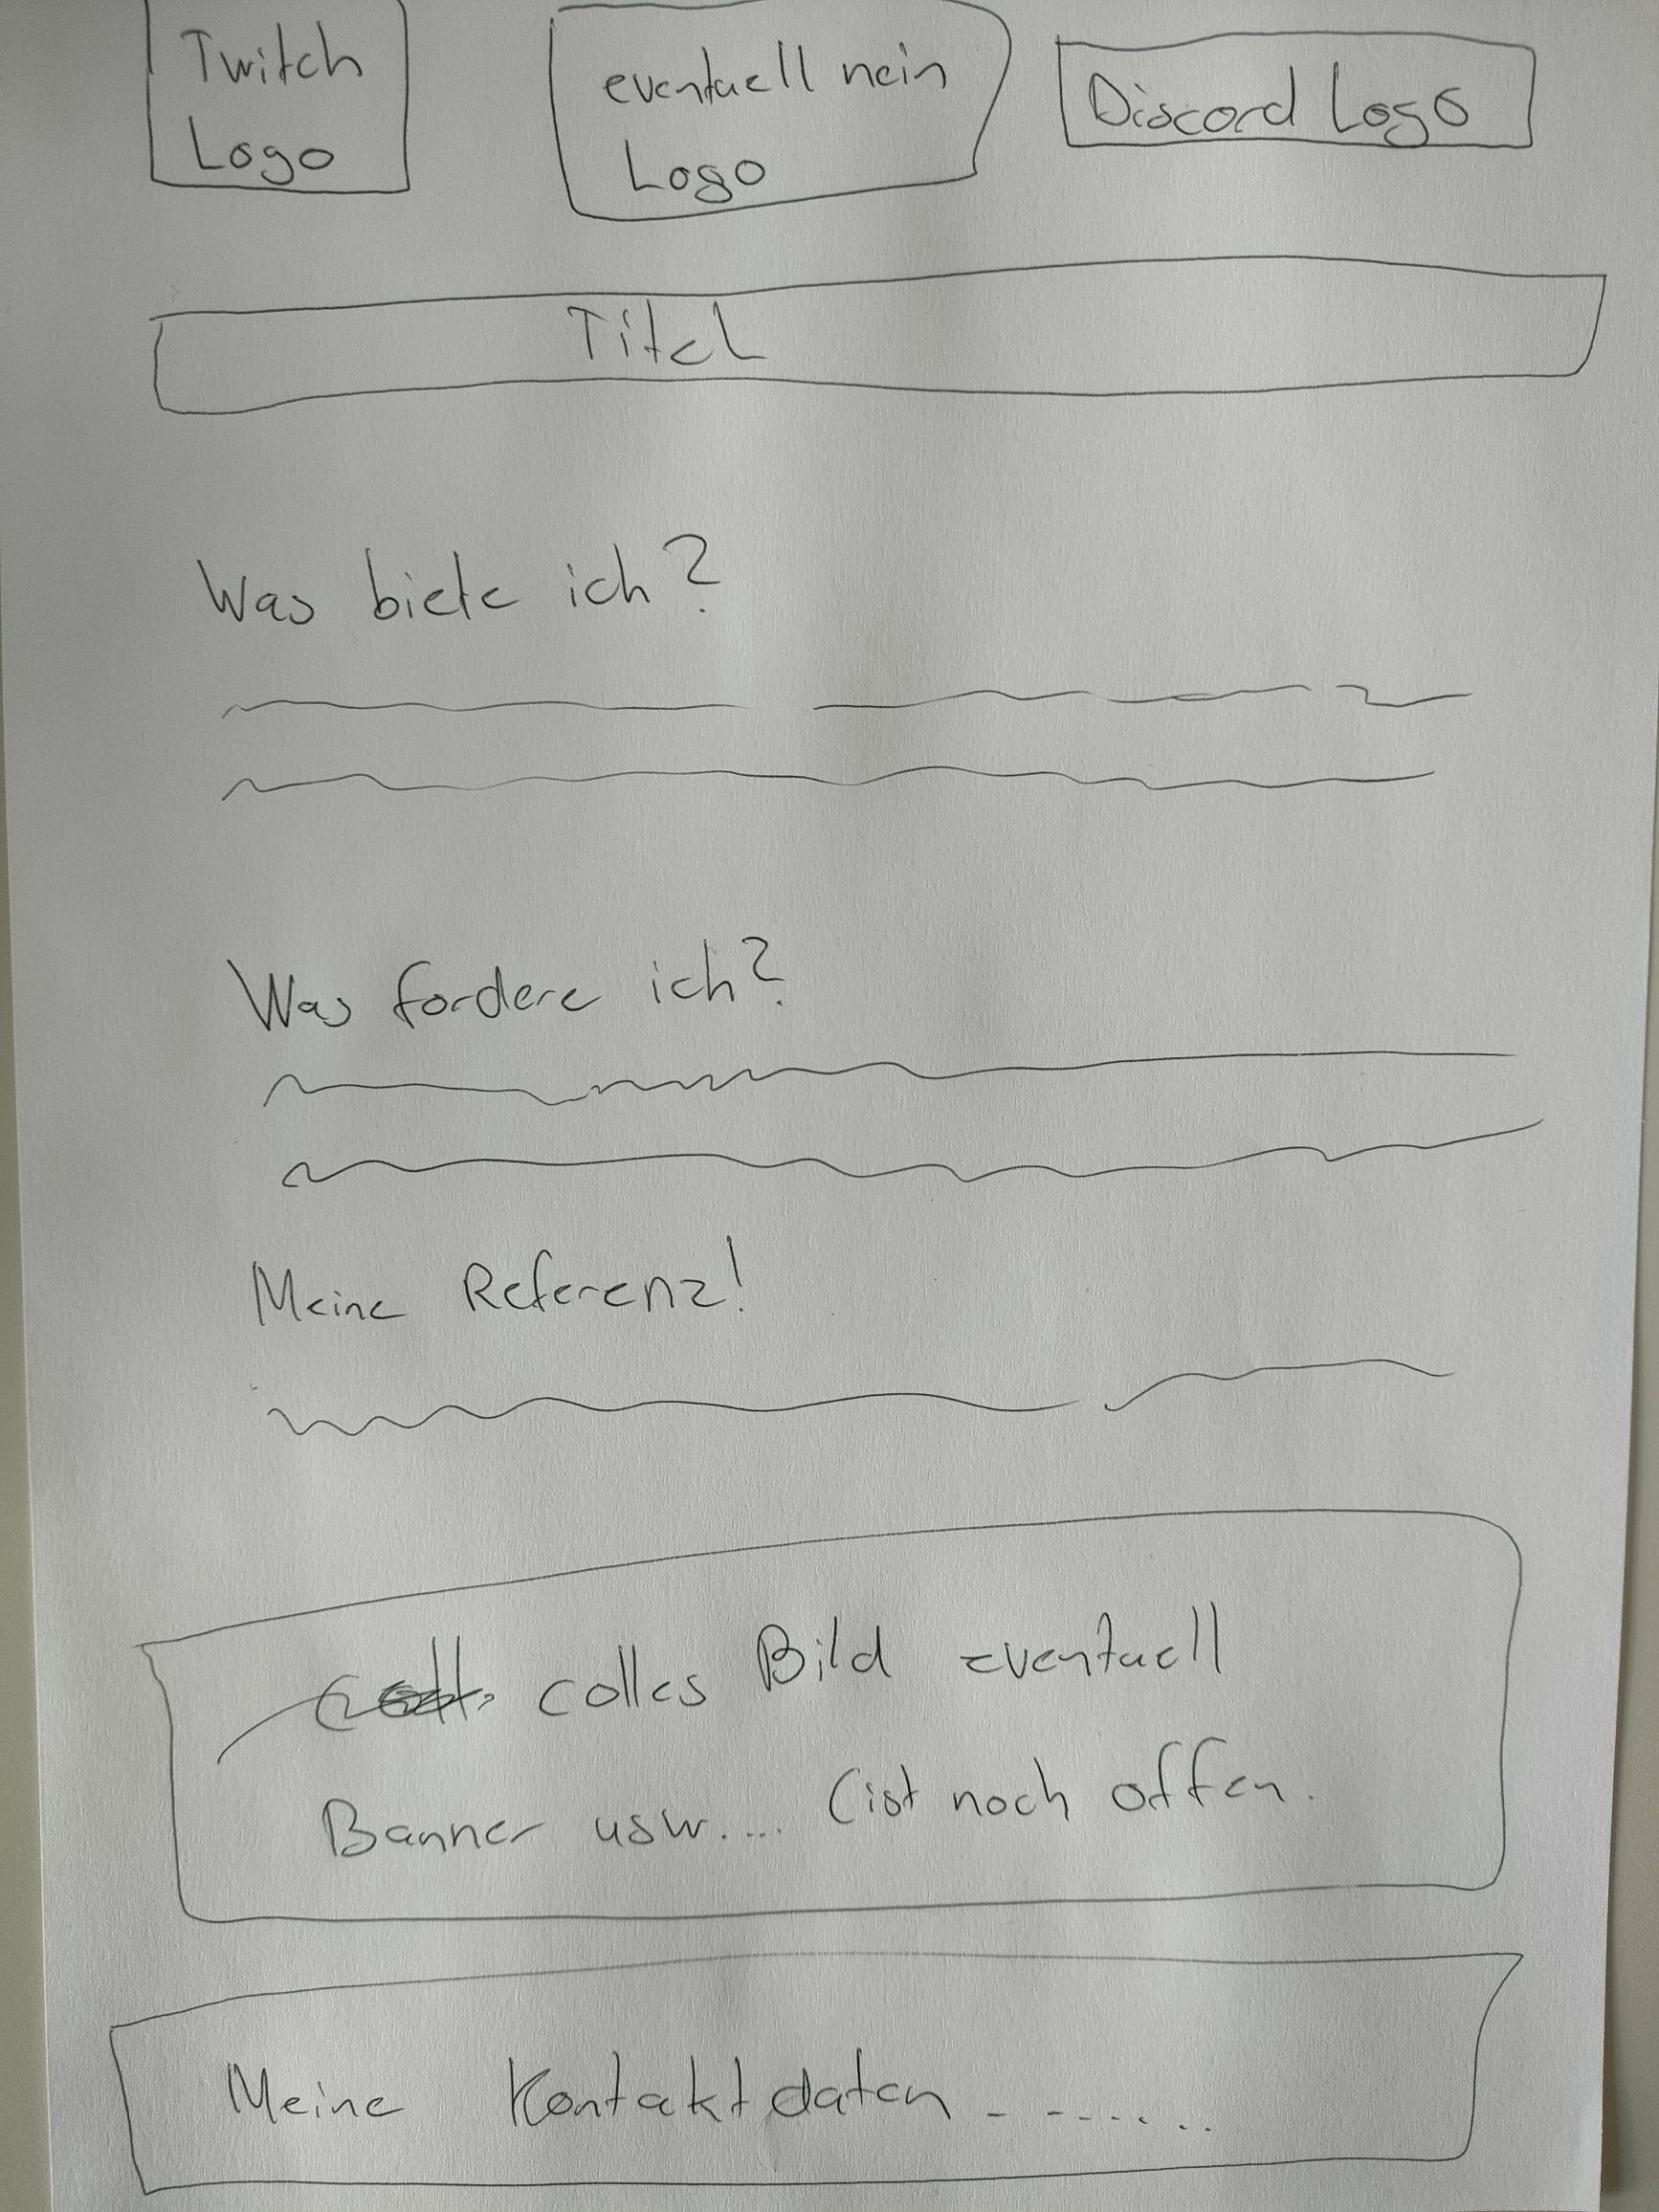 Twitch
Logo
eventuell nein
Logo
Discord Logo
Titel
Was biete ich?
Was fordere ich?
Meine Referenz!
colles Bild eventuell
Banner usw.... (ist noch offen.
Meine Kontaktdaten - - ......